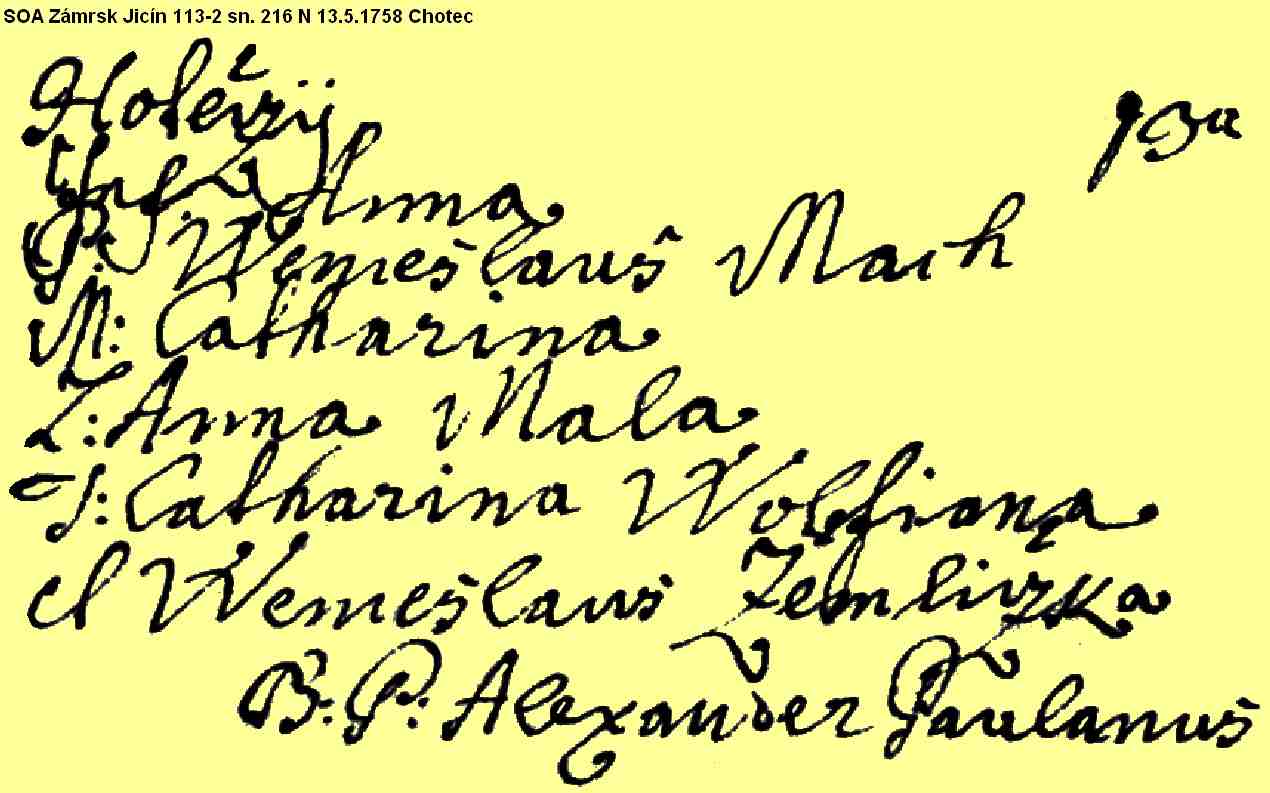 SOA Zámrsk Jicín 113-2 sn. 216 N 13.5.1758 Chotec
13a
Inf. Anna
P: Wenceslaus Mach
M: Catharina
L: Anna Mala
T: Catharina Wolfiana
et Wenceslaus Zemliczka
B: P: Alexander Paulanus